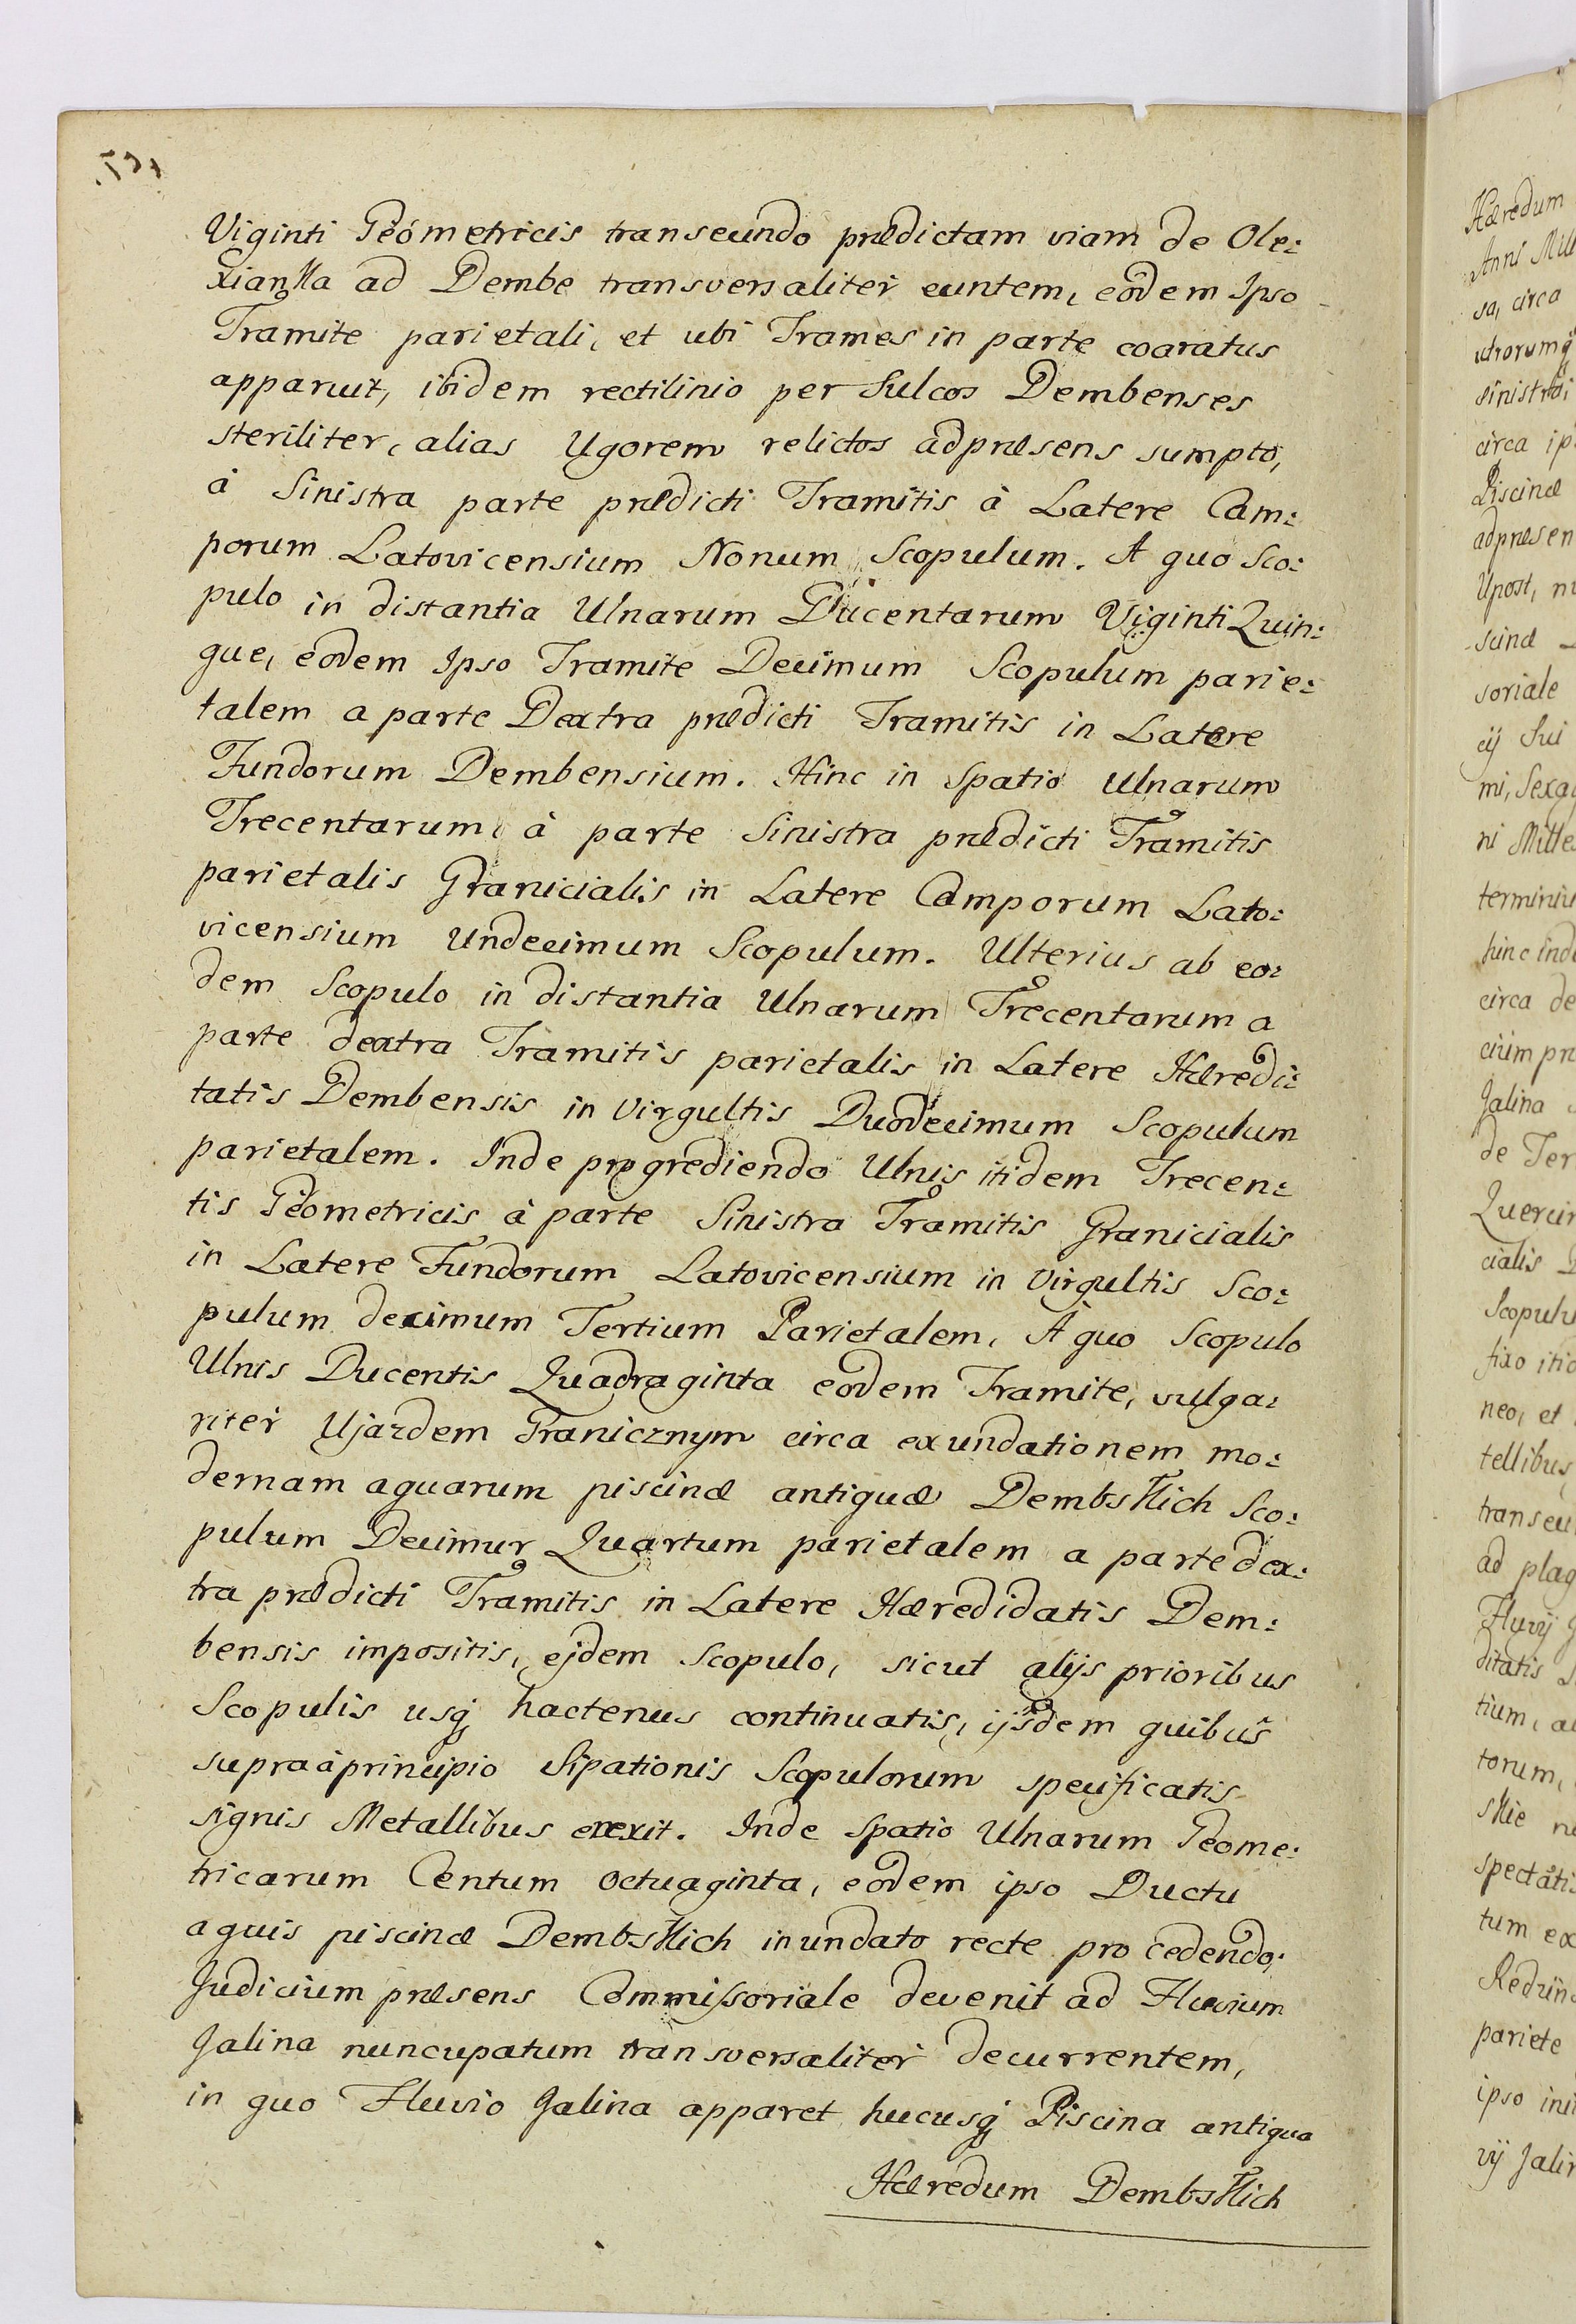 Viginti Geómetricis transeundo prædictam viam de Ole:
xianKa ad Dembe transversaliter euntem, eodem Ipso
Tramite parietali, et ubi Trames in parte coaratus
apparuit, ibidem rectilinio per Sulcos Dembenses
steriliter, alias Ugorem relictos adpræsens sumpto,
à Sinistra parte prædicti Tramitis à Latere Cam:
porum Latovicensium Nonum Scopulum. A quo Sco:
pulo in distantia Ulnarum Ducentarum Viginti Quin:
que, eodem Ipso Tramite Decimum Scopulum parie:
talem a parte Dextra prædicti Tramitis in Latere
Fundorum Dembensium. Hinc in Spatio Ulnarum
Trecentarum, à parte Sinistra prædicti Tramitis
parietalis Granicialis in Latere Camporum Lato:
vicensium Undecimum Scopulum. Ulterius ab eo:
dem Scopulo in distantia Ulnarum Trecentarum a
parte dextra Tramitis parietalis in Latere Hæredi:
tatis Dembensis in Virgultis Duodecimum Scopulum
parietalem. Inde progrediendo Ulnis itidem Trecen:
tis Geometricis à parte Sinistra Tramitis Granicialis
in Latere Fundorum Latovicensium in Virgultis Sco:
pulum decimum Tertium Parietalem, A quo Scopulo
Ulnis Ducentis Quadraginta eodem Tramite, vulga:
riter Ujazdem Granicznym circa exundationem mo:
dernam aquarum piscinæ antiquæ DembsKich Sco:
pulum Decimum Quartum parietalem a parte dex:
tra prædicti Tramitis in Latere Hæredidatis Dem:
bensis impositis, ejdem Scopulo, sicut alijs prioribus
Scopulis usq hactenus continuatis, ijsdem quibus
supra à principio Sipationis Scopulorum specificatis
signis Metallibus erexit. Inde Spatio Ulnarum Geome:
tricarum Centum Octuaginta, eodem ipso Ductu
aquis piscinæ DembsKich inundato recte procedendo,
Judicium præsens Commissoriale devenit ad Fluvium
Jalina nuncupatum transversaliter decurrentem,
in quo Fluvio Jalina apparet hucusq Piscina antiqua
Hæredum DembsKich
Hæredum
Anni Mill
sa, circa
utrorumq
sinistra
circa ip
Piscinæ
adpræsen
Upost,
scinæ
soriale
ij Sui
mi, Sexa
ni Mille
terminiu
hinc ind
circa de
cium pr
Jalina
de Ter
Quercin
cialis
Scopulu
fixo iti
neo, et
tellibus
transeu
ad plag
Fluvij
ditatis
tium, a
torum,
sKie n
spectati
tum ex
Redun
pariete
ipso ini
vij Jalin